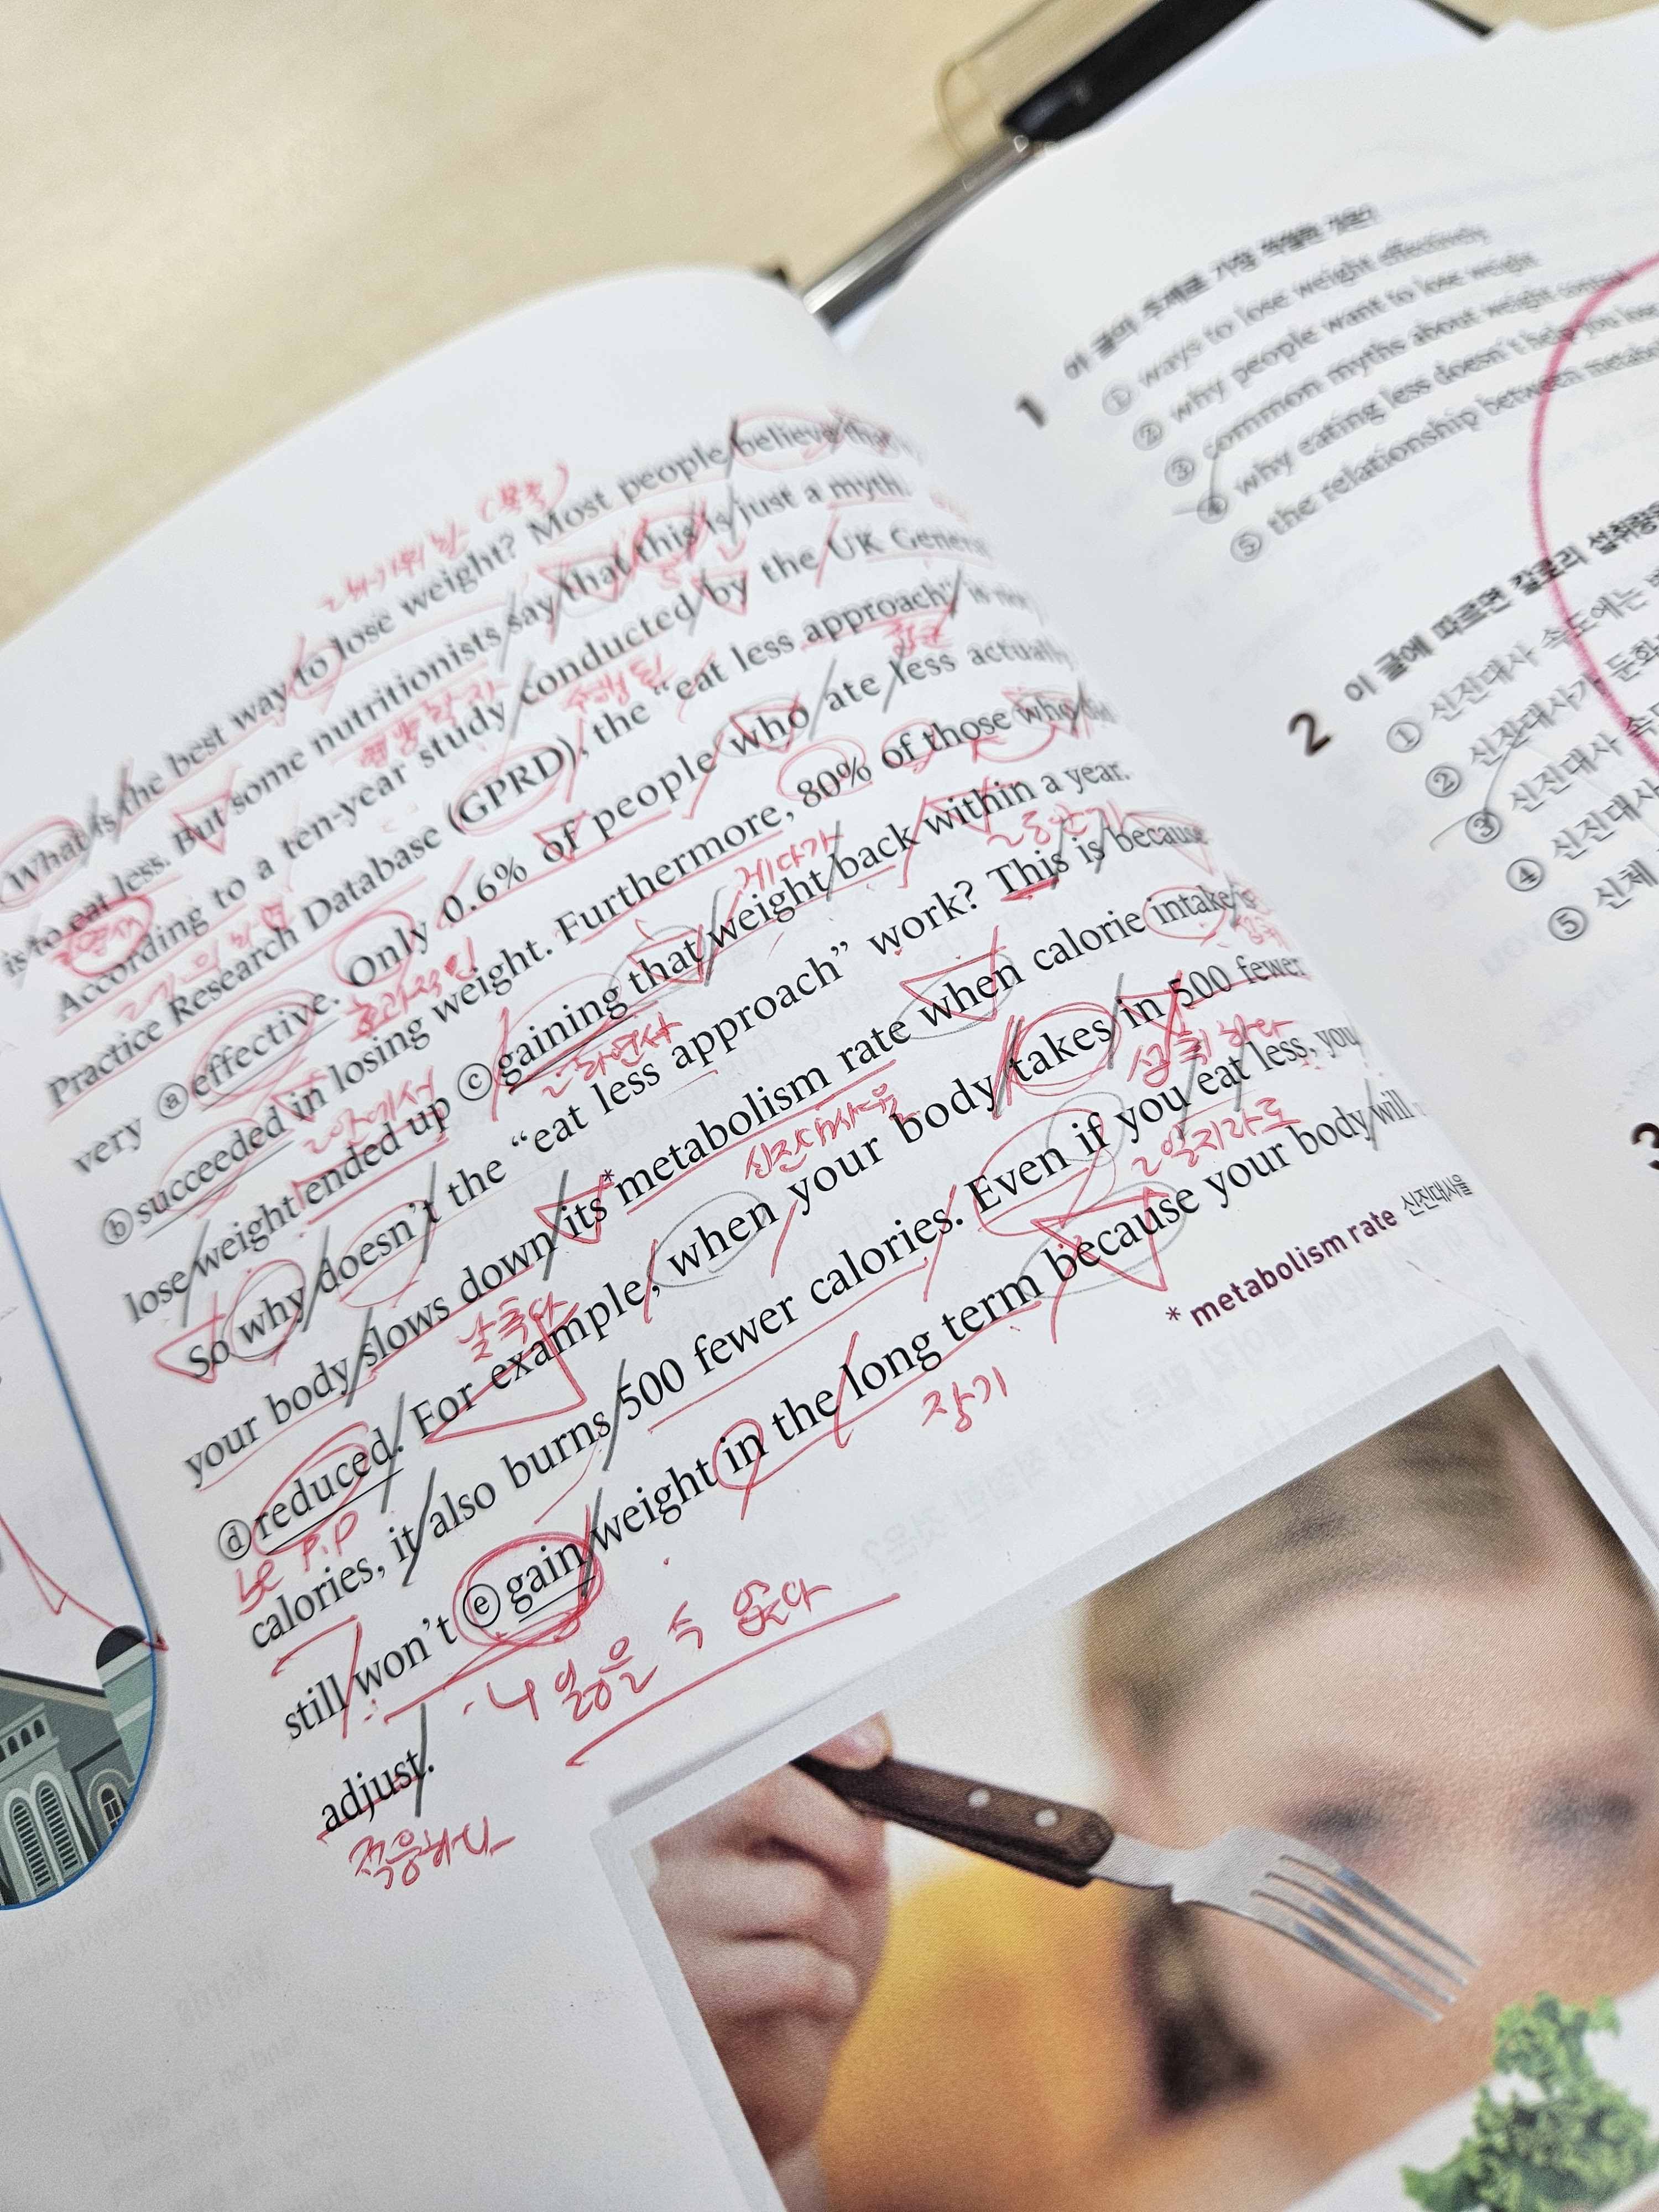 What is the best way to lose weight? Most people believe that
is to eat less. But some nutritionists say that this is just a myth.
According to a ten-year study conducted by the UK General
Practice Research Database (GPRD), the “eat less approach” is not
very ⓐ effective. Only 0.6% of people who ate less actually
ⓑ succeeded in losing weight. Furthermore, 80% of those who did
lose weight ended up ⓒ gaining that weight back within a year.
So why doesn’t the “eat less approach” work? This is because
your body slows down its * metabolism rate when calorie intake is
ⓓ reduced. For example, when your body takes in 500 fewer
calories, it also burns 500 fewer calories. Even if you eat less, you
still won’t ⓔ gain weight in the long term because your body will
adjust.
* metabolism rate 신진대사율
영양학자
수행된
접근
효과적인
게다가
신진대사율
섭취하다
낮추다
be P.P
장기
잃을 수 없다
적응하다
1 이 글의 주제로 가장 적절한 것은?
① ways to lose weight effectively
② why people want to lose weight
③ common myths about weight control
④ why eating less doesn’t help you lose
⑤ the relationship between
2 이 글에 따르면 칼로리 섭취량
① 신진대사 속도에는
② 신진대사가 둔화
③ 신진대사 속도
④ 신진대사
⑤ 신체
3